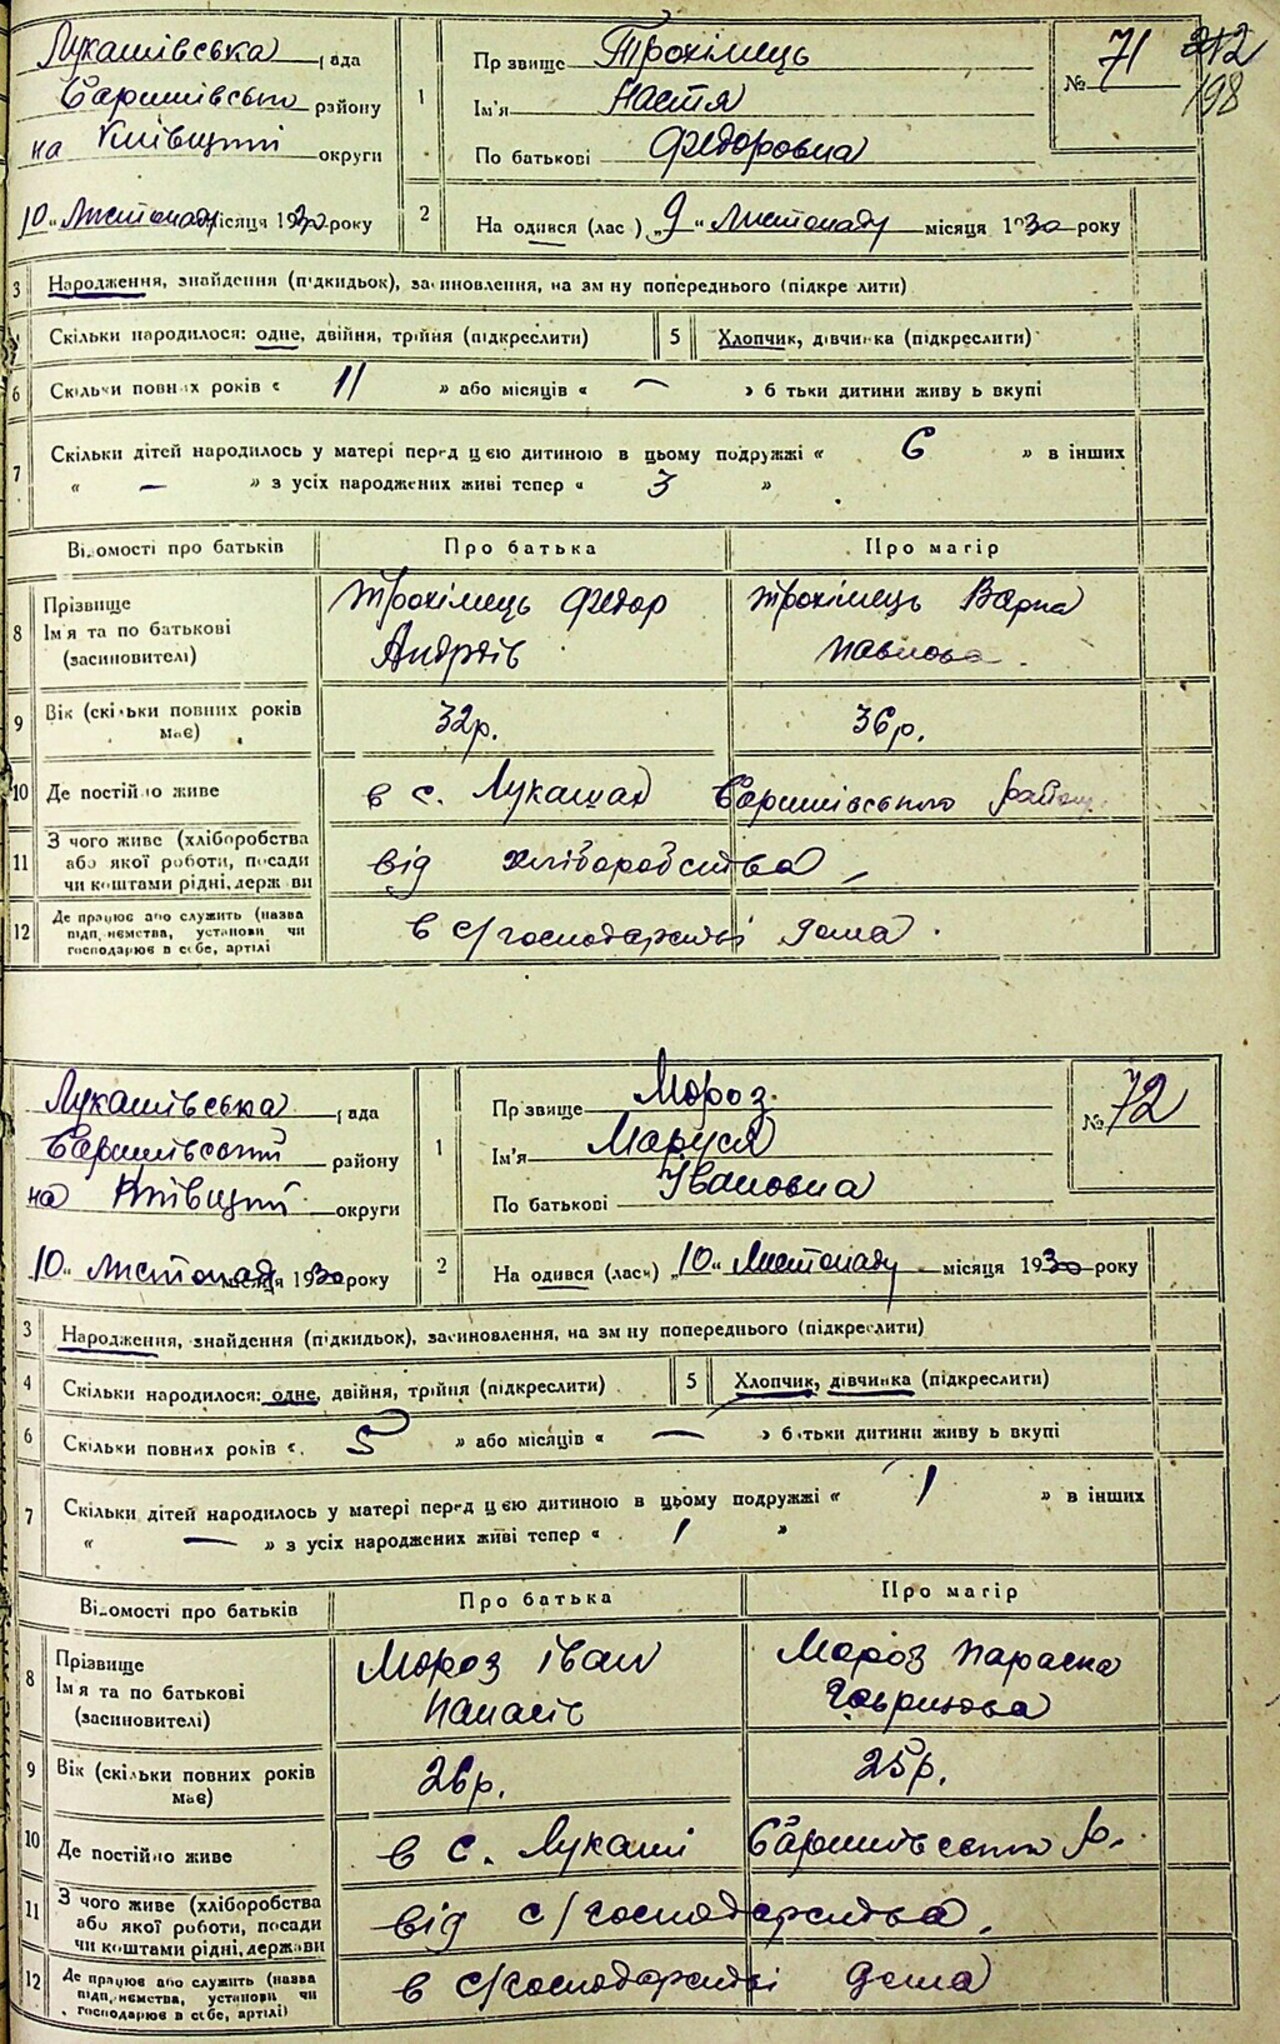 Лукашівська рада
Баришівсько району
на Київщині округи
10 " Листопаду місяця 1930 року
1
Пр звище Трохімець
Ім'я Настя
По батькові Федоровна
№ 71
212
198
2
На одився (лас ) „ 9 " Листопаду місяця 1930 року
3 Народження, знайдення (підкидьок), засиновлення, на зм ну попереднього (підкре лити)
Скільки народилося: одне, двійня, трійня (підкреслити)
5 Хлопчик, дівчинка (підкреслити)
6 Скільки повних років « 11 » або місяців « — » б тьки дитини живу ь вкупі
7 Скільки дітей народилось у матері перед цією дитиною в цьому подружжі « 6 » в інших
« — » з усіх народжених живі тепер « 3 »
Відомості про батьків Про батька Про матір
8 Прізвище
Ім'я та по батькові
(засиновителі)
Трохімець Федор
Андрів
Трохімець Варка
Павлова
9 Вік (скільки повних років
має)
32р. 36р.
10 Де постійно живе в с. Лукашах Баришівського району
11 З чого живе (хліборобства
або якої роботи, посади
чи коштами рідні, держ ви
від хліборобства
12 Де працює або служить (назва
підп иємства, установи чи
господарює в себе, артілі
в с/господарстві дома
Лукашівська рада
Баришівський району
на Київщині округи
10 " Листопад місяця 1930 року
1
Пр звище Мороз
Ім'я Маруся
По батькові Івановна
№ 72
2
На одився (лась) „ 10 " Листопаду місяця 1930 року
3 Народження, знайдення (підкидьок), засиновлення, на зм ну попереднього (підкреслити)
4 Скільки народилося: одне, двійня, трійня (підкреслити)
5 Хлопчик, дівчинка (підкреслити)
6 Скільки повних років « 5 » або місяців « — » батьки дитини живу ь вкупі
7 Скільки дітей народилось у матері перед цією дитиною в цьому подружжі « 1 » в інших
« — » з усіх народжених живі тепер « 1 »
Відомості про батьків Про батька Про матір
8 Прізвище
Ім'я та по батькові
(засиновителі)
Мороз Іван
Панасів
Мороз Параска
Гаврилова
9 Вік (скільки повних років
має)
26р. 25р.
10 Де постійно живе в с. Лукаші Баришівського р.
11 З чого живе (хліборобства
або якої роботи, посади
чи коштами рідні, держави
від с/господарства.
12 Де працює або служить (назва
підп иємства, установи чи
господарює в себе, артілі)
в с/господарстві дома